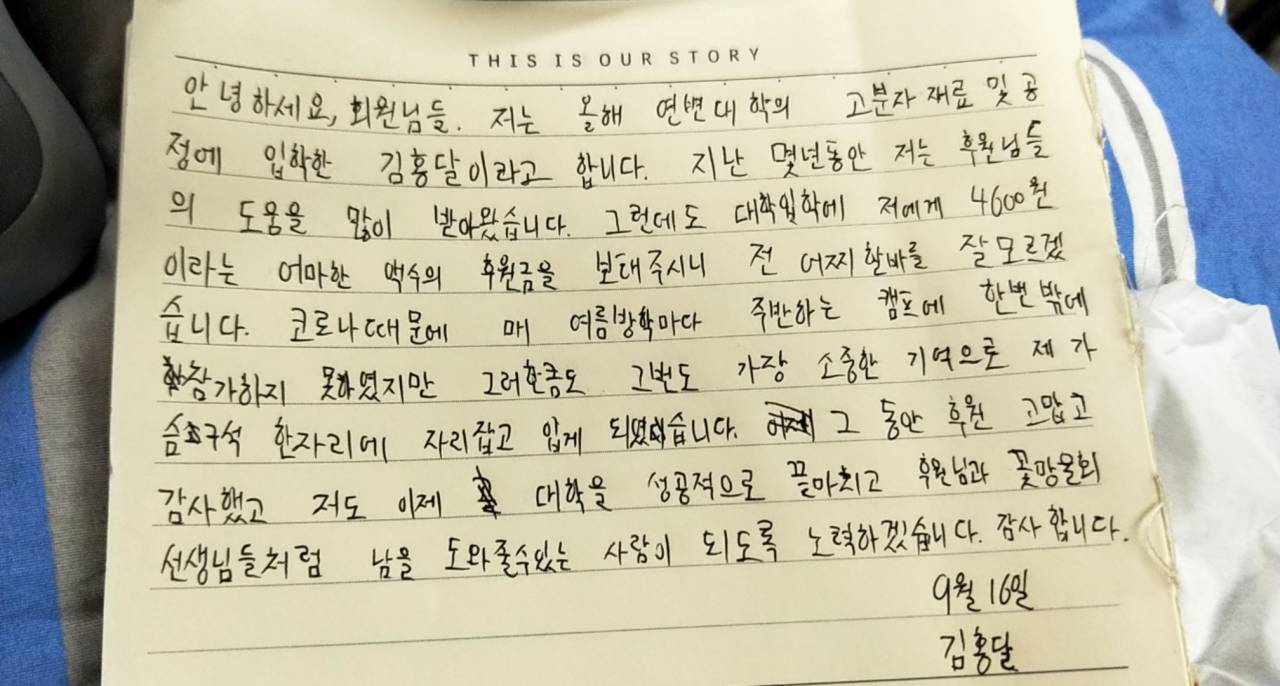 THIS IS OUR STORY
안녕하세요, 회원님들. 저는 올해 연변대학의 고분자재료 및 공
정에 입학한 김홍달이라고 합니다. 지난 몇년동안 저는 후원님들
의 도움을 많이 받아왔습니다. 그런데도 대학입학에 저에게 4600원
이라는 어마한 액수의 후원금을 보태주시니 전 어찌할바를 잘 모르겠
습니다. 코로나때문에 매 여름방학마다 주반하는 캠프에 한번밖에
참가하지 못하였지만 그러한큼도 그번도 가장 소중한 기억으로 제 가
슴구석 한자리에 자리잡고 있게 되였습니다. 그 동안 후원 고맙고
감사했고 저도 이제 대학을 성공적으로 끝마치고 후원님과 꽃망울회
선생님들처럼 남을 도와줄수있는 사람이 되도록 노력하겠습니다. 감사합니다.
9월 16일
김홍달